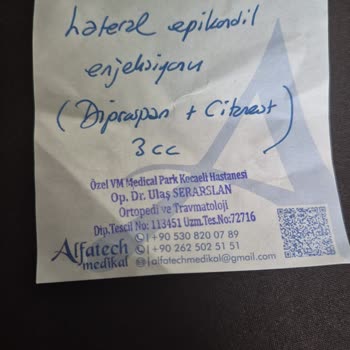 Lateral epikondil
enjeksiyonu
(Diprospan + Citanest)
3 cc
Özel VM Medical Park Kocaeli Hastanesi
Op. Dr. Ulaş SERARSLAN
Ortopedi ve Travmatoloji
Dip.Tescil No: 113451 Uzm.Tes.No:72716
Alfatech
medikal
+90 530 820 07 89
+90 262 502 51 51
alfatechmedikal@gmail.com